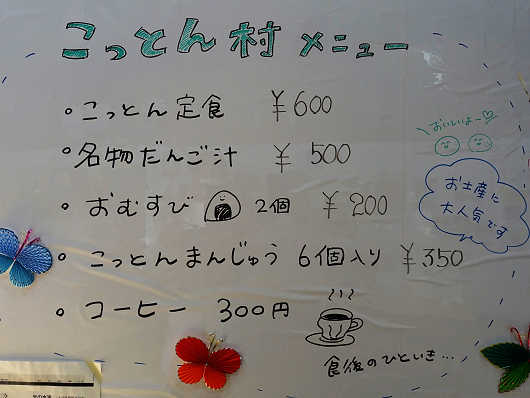 こっとん村 メニュー
・こっとん定食 ¥600
・名物だんご汁 ¥500
・おむすび 2個 ¥200
・こっとんまんじゅう 6個入り ¥350
・コーヒー 300円
\おいしいよー♡/
お土産に
大人気です
食後のひといき…